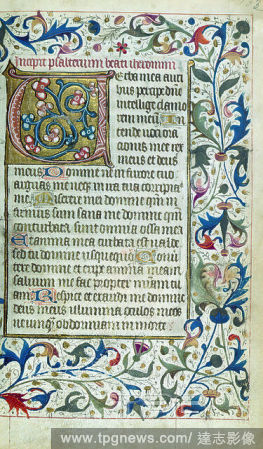 Incipit psalterium beati iheronimi
Verba mea auri
bus percipe dñe
intellige clamo
rem meū In
tende voci ora
tionis mee rex
meus et deus
meus Domine ne in furore tuo
arguas me neqz in ira tua corripias
me Miserere mei domine qm̄ in
firmus sum sana me domine qm̄
conturbata sunt omnia ossa mea
Et anima mea turbata est valde
sed tu domine usquequo Conver
tere domine et eripe animā meam
salvum me fac propter mīam tu
am Respice et exaudi me domine
deus meus illumina oculos meos
ne unqz obdormiam in morte
www.tpgnews.com/ 達志影像